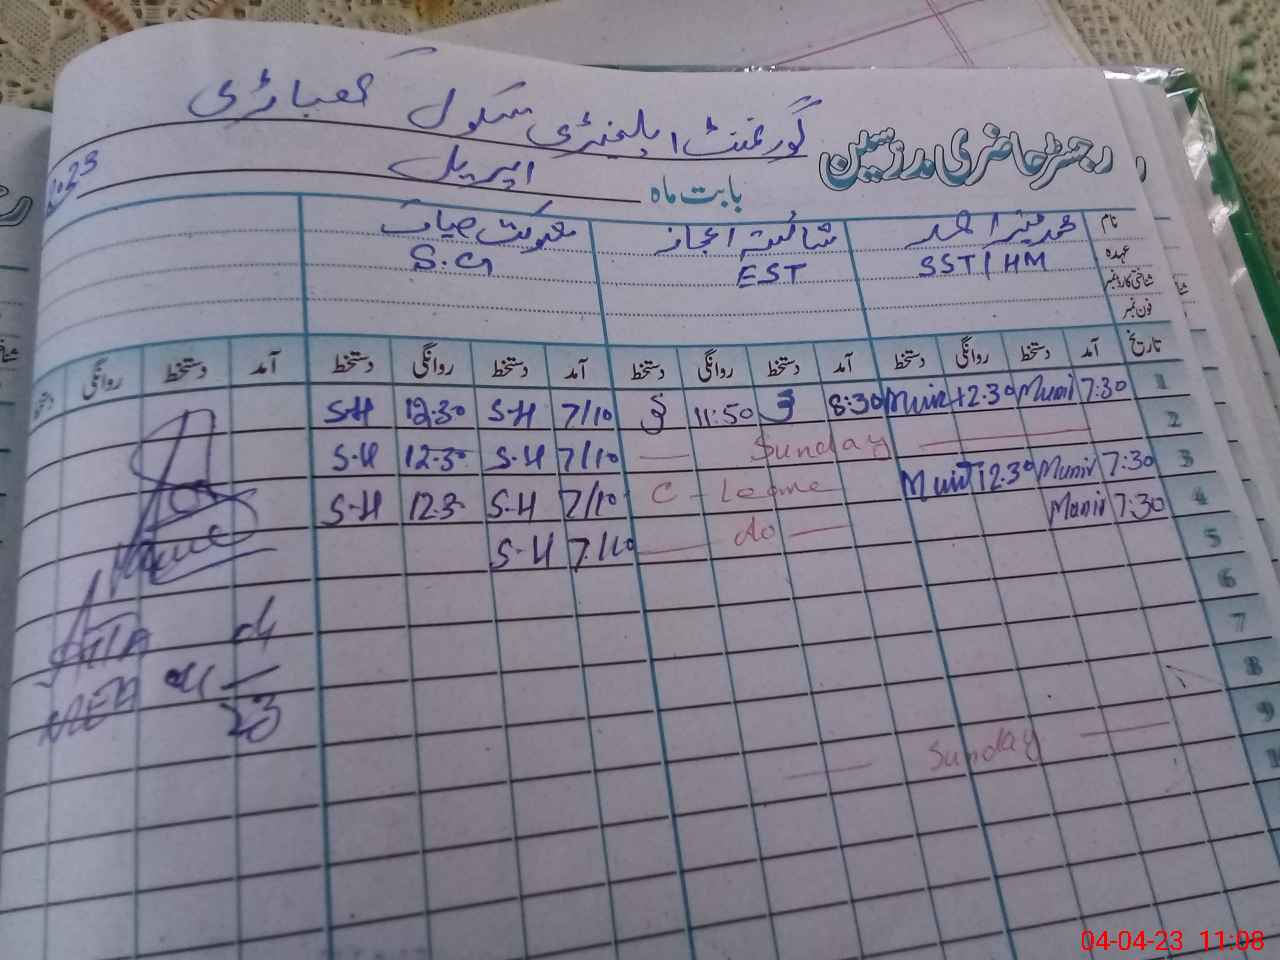 گورنمنٹ ایلیمنٹری سکول
رجسٹر حاضری مدرسین
بابت ماہ اپریل 2023
نام محمد منیر احمد شائستہ اعجاز
عہدہ SST/HM EST S.G
شناختی کارڈ نمبر
فون نمبر
تاریخ آمد دستخط روانگی دستخط آمد دستخط روانگی دستخط آمد دستخط روانگی دستخط آمد دستخط روانگی
1 7:30 Munir 12.30 Munir 8:30 11:50 7/10 S.H 12.30 S.H
2 Sunday 7/10 S.H 12.30 S.H
3 7:30 Munir 12.30 Munir C - Leave 7/10 S.H 12.3 S.H
4 7:30 Munir do 7/10 S.H
5
6
7
8
9 Sunday
04-04-23 11:08